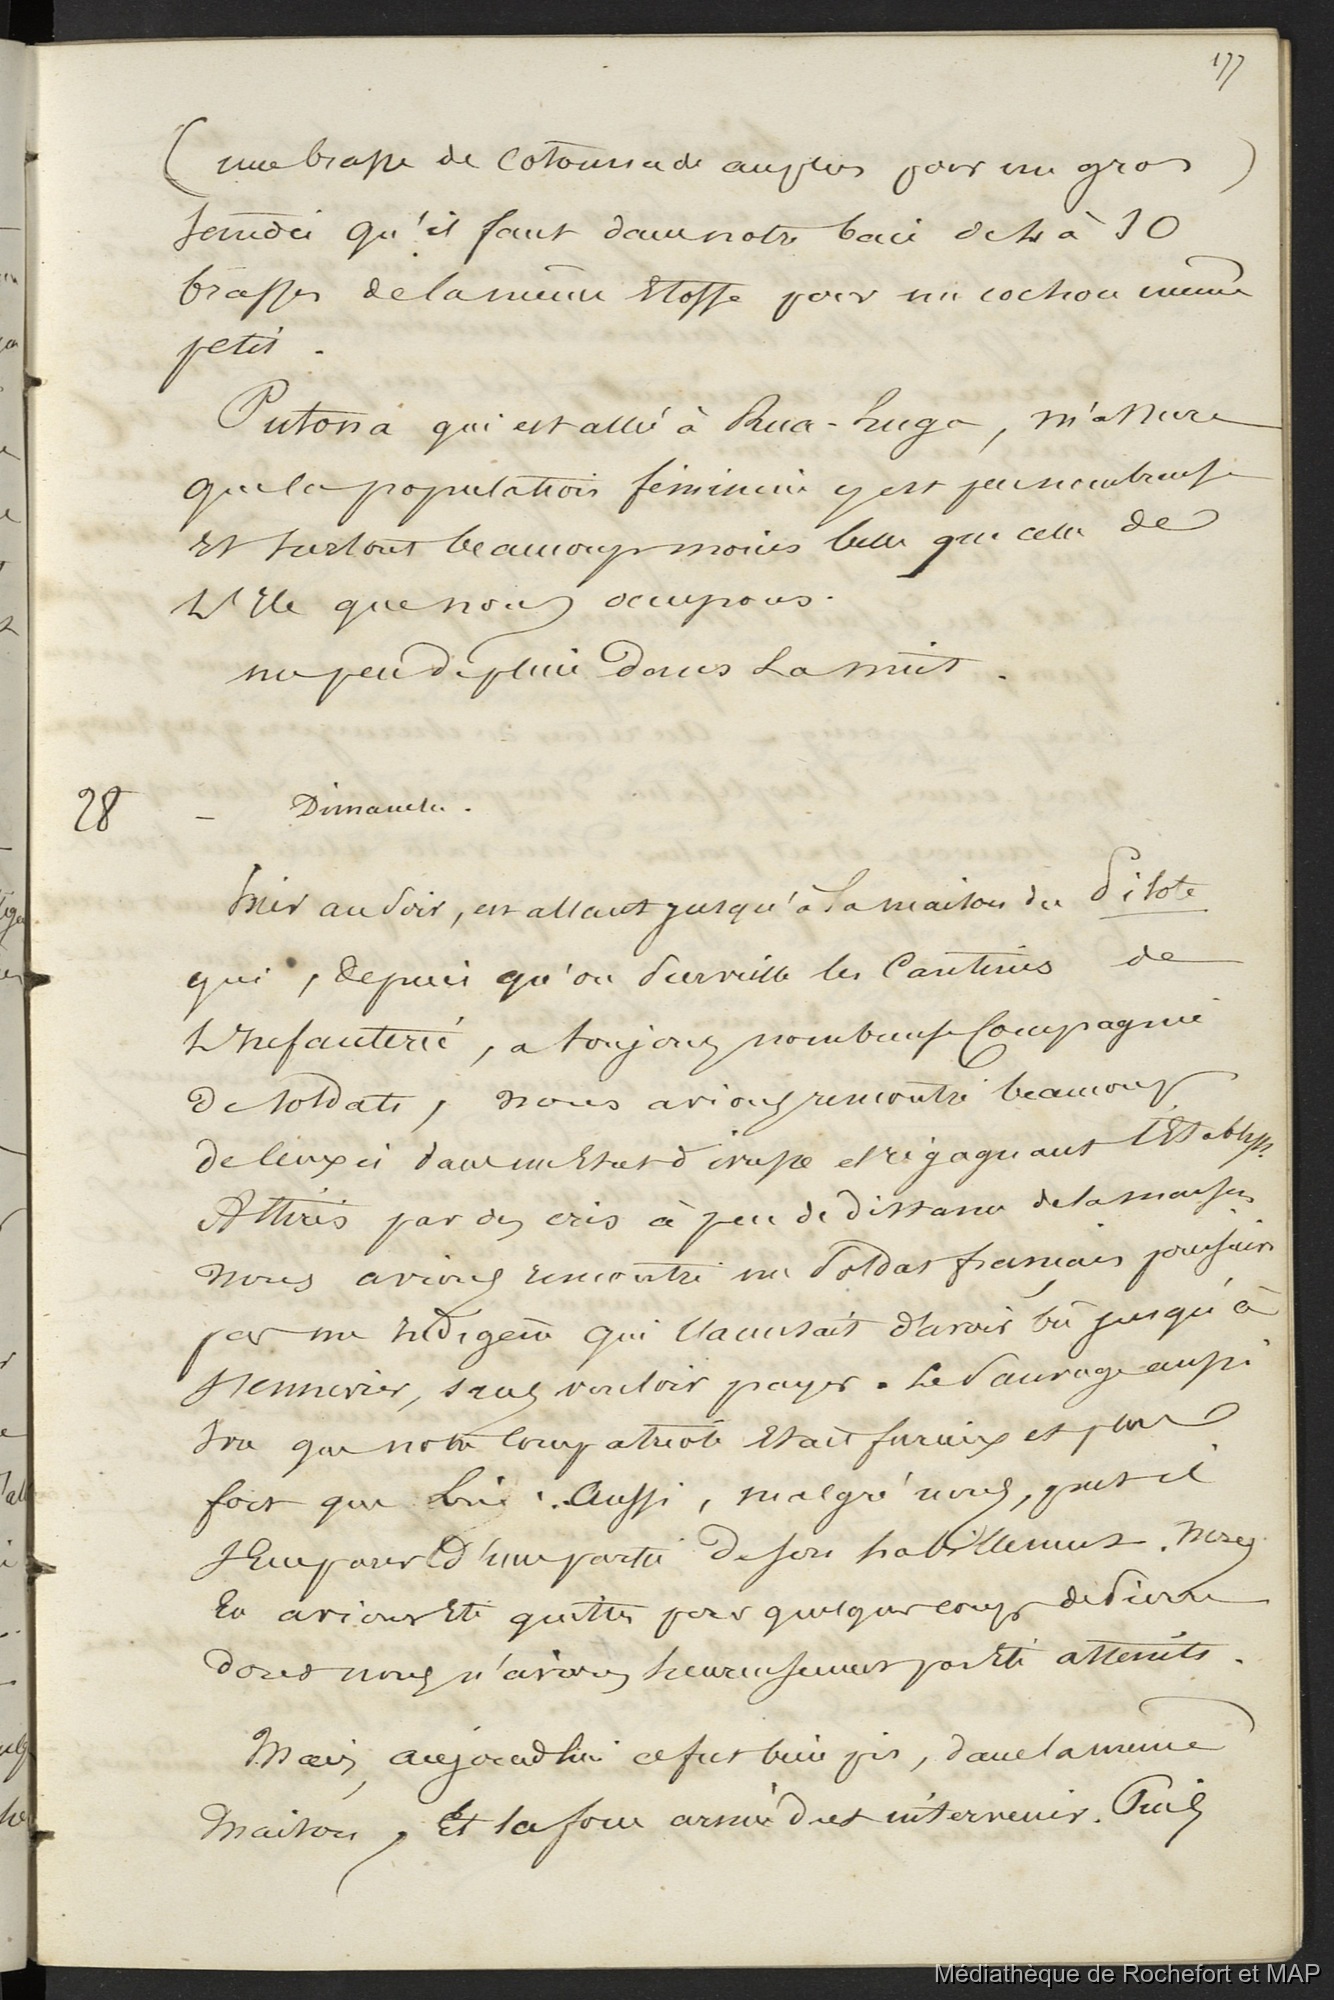 177
(une brasse de cotonnade au plus pour un gros)
tandis qu'il faut dans notre baie de 4 à 10
brasses de la même Etoffe pour un cochon même
petit.
Putona qui est allé à Rua-huga, m'assure
que la population féminine y est peu nombreuse
Et surtout beaucoup moins belle que celle de
L'Ile que nous occupons.
un peu de pluie Dans La nuit.
28 - Dimanche.
Hier au Soir, en allant jusqu'à La maison du Pilote
qui, depuis qu'on Surveille les Cantines de
L'Infanterie, a toujours nombreuse Compagnie
De soldats, nous avions rencontré beaucoup
de ceux ci dans un Etat d'ivresse et regagnant l'Etablisst.
Attirés par des cris à peu de distance de la maison
nous avions rencontré un Soldat français poursuivi
par un Indigène qui l'accusait d'avoir bû jusqu'à
s'ennivrer, sans vouloir payer. Le Sauvage aussi
Ivre que notre Compatriote Etait furieux et plus
fort que Lui. Aussi, malgré nous, put il
s'Emparer d'une partie De son habillement. Nous
En avions Eté quittes pour quelques coups de Pierre
Dont nous n'avions heureusement pas Eté atteints.
Mais, aujourd'hui ce fut bien pis, dans la même
Maison, Et la force armée dut intervenir. Puis
Médiathèque de Rochefort et MAP